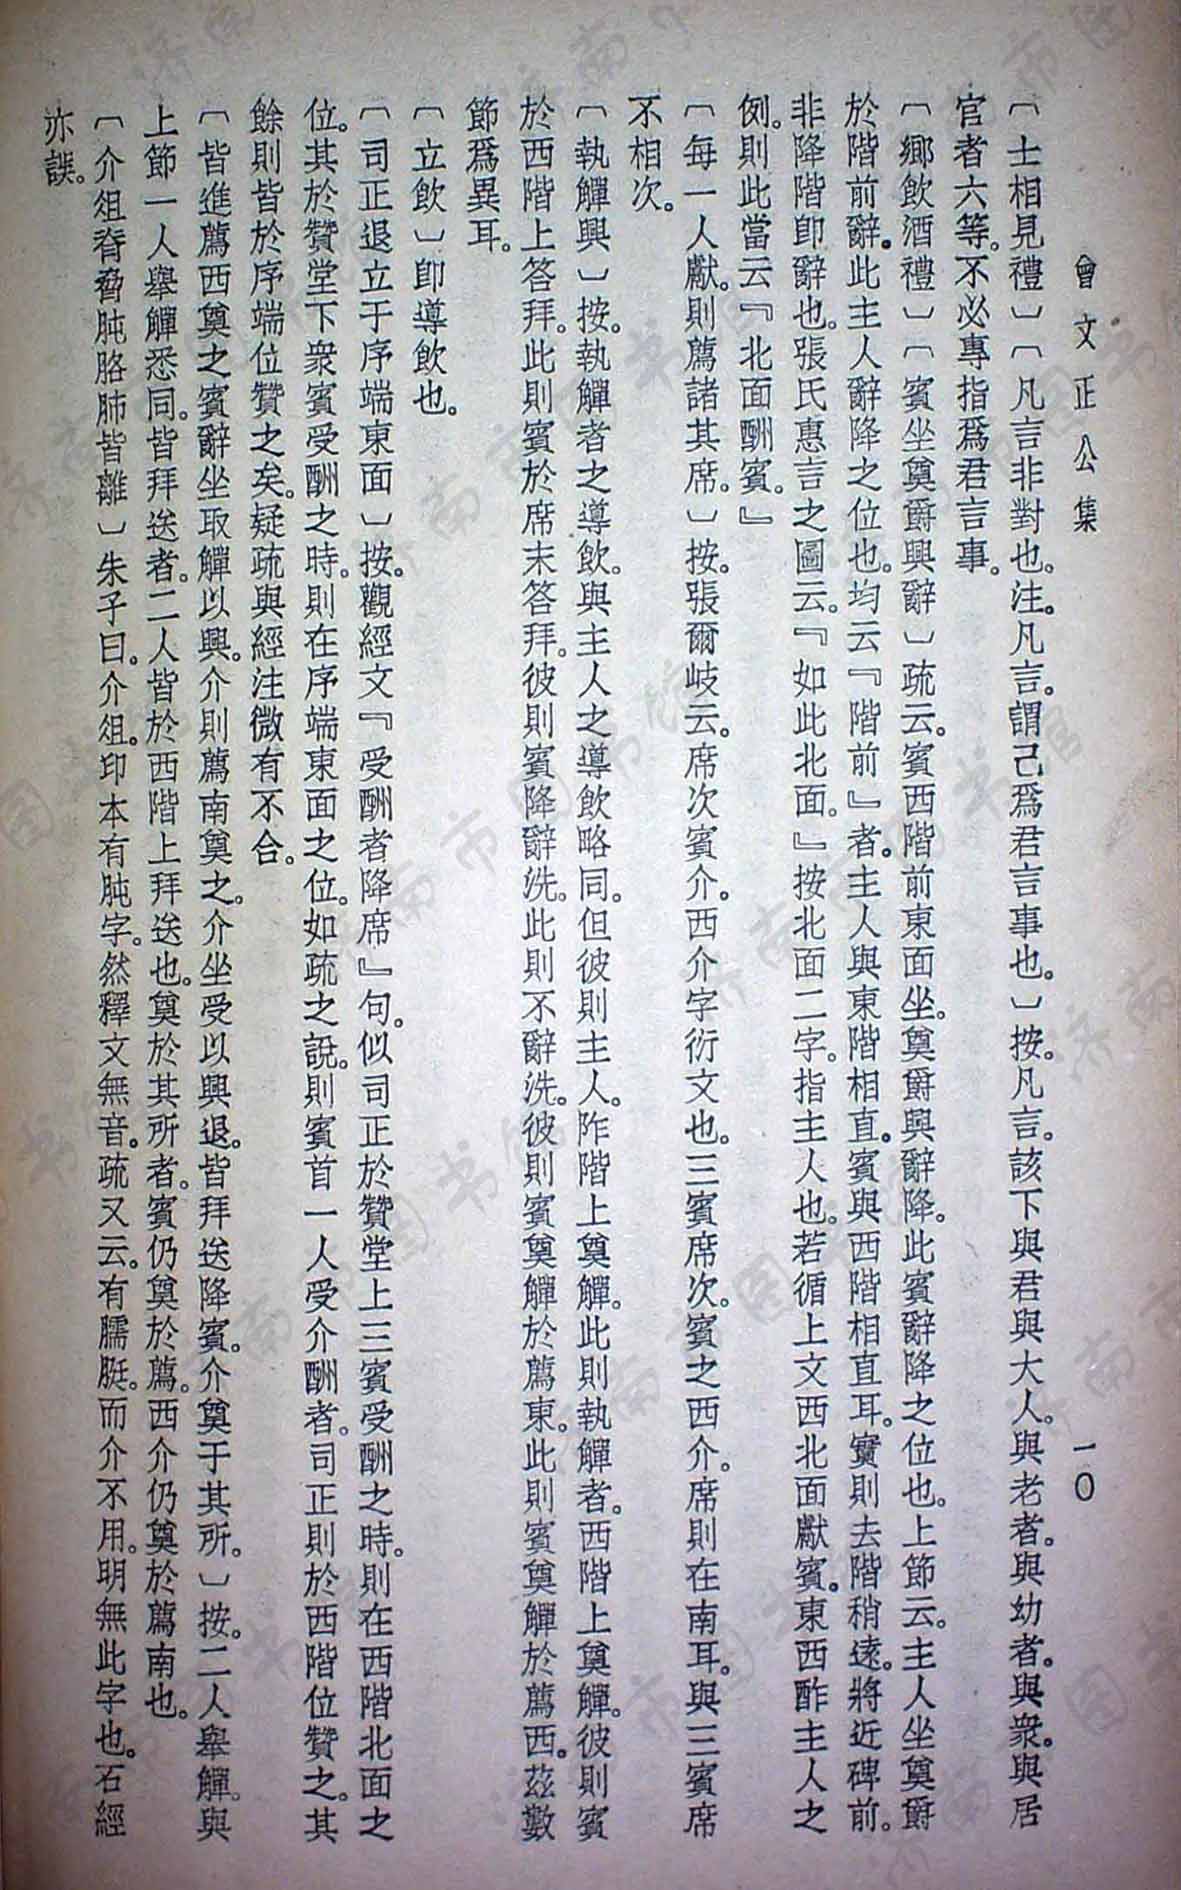 曾文正公集
一〇
〔士相見禮〕〔凡言非對也。注。凡言。謂己爲君言事也。〕按。凡言。該下與君與大人。與老者。與幼者。與衆。與居
官者六等。不必專指爲君言事。
〔鄉飲酒禮〕〔賓坐奠爵興辭〕疏云。賓西階前東面坐。奠爵興辭降。此賓辭降之位也。上節云。主人坐奠爵
於階前辭。此主人辭降之位也。均云『階前』者。主人與東階相直。賓與西階相直耳。實則去階稍遠。將近碑前。
非降階卽辭也。張氏惠言之圖云。『如此北面。』按北面二字。指主人也。若循上文西北面獻賓。東西酢主人之
例。則此當云『北面酬賓。』
〔每一人獻。則薦諸其席。〕按。張爾岐云。席次賓介。西介字衍文也。三賓席次。賓之西介。席則在南耳。與三賓席
不相次。
〔執觶興〕按。執觶者之導飲。與主人之導飲略同。但彼則主人。阼階上奠觶。此則執觶者。西階上奠觶。彼則賓
於西階上答拜。此則賓於席末答拜。彼則賓降辭洗。此則不辭洗。彼則賓奠觶於薦東。此則賓奠觶於薦西。茲數
節爲異耳。
〔立飲〕卽導飲也。
〔司正退立于序端東面〕按。觀經文『受酬者降席』句。似司正於贊堂上三賓受酬之時。則在西階北面之
位。其於贊堂下衆賓受酬之時。則在序端東面之位。如疏之說。則賓首一人受介酬者。司正則於西階位贊之。其
餘則皆於序端位贊之矣。疑疏與經注微有不合。
〔皆進薦西奠之賓辭坐取觶以興。介則薦南奠之。介坐受以興退。皆拜送降賓。介奠于其所。〕按。二人舉觶。與
上節一人舉觶悉同。皆拜送者。二人皆於西階上拜送也。奠於其所者。賓仍奠於薦。西介仍奠於薦南也。
〔介俎脊脅肫胳肺皆離〕朱子曰。介俎。印本有肫字。然釋文無音。疏又云。有臑脡。而介不用。明無此字也。石經
亦誤。